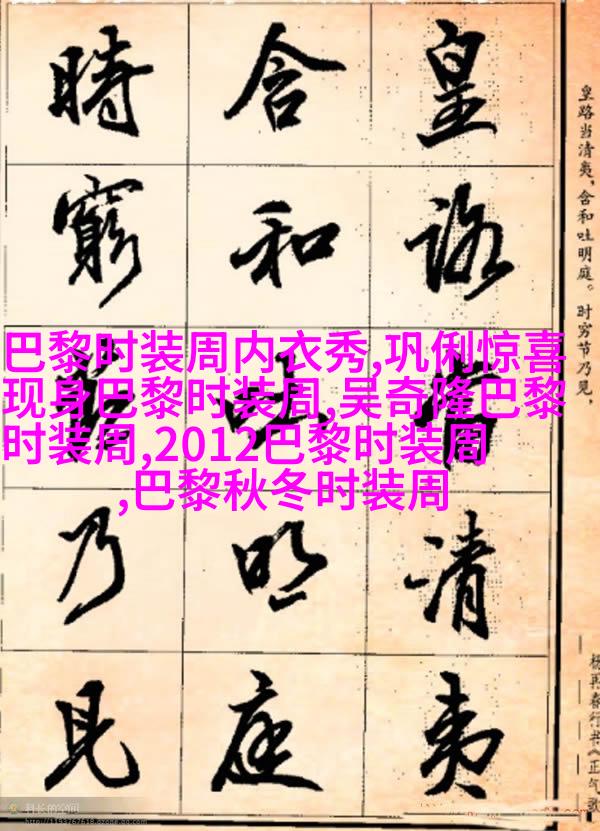 皇路當清夷
含和吐明庭
時窮節乃見
皇路当清夷，含和吐明庭。时穷节乃见，
杨再春行书《正气歌
巴黎时装周内衣秀,巩俐惊喜
现身巴黎时装周,吴奇隆巴黎
时装周,2012巴黎时装周
,巴黎秋冬时装周
科长的空间
http://1193767618.qzone.qq.com